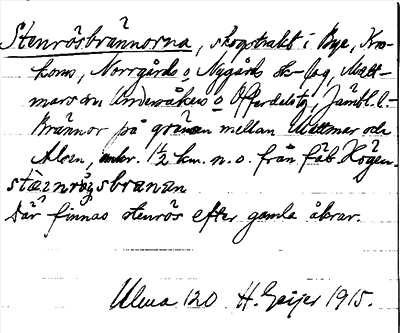 Stenrösbrännorna, skogstrakt i Bye, Kro-
kom, Norrgårds o Nygårds
mars o Undersåkers o Offerdals tg, Jämtl. l.
Brännor på gränsen mellan Mattmar och
Alsen, 1½ km. n. o. från fäb. Högen.
Där finnas stenrös efter gamla åkrar.
Ulma 120 H. Geijer 1915.